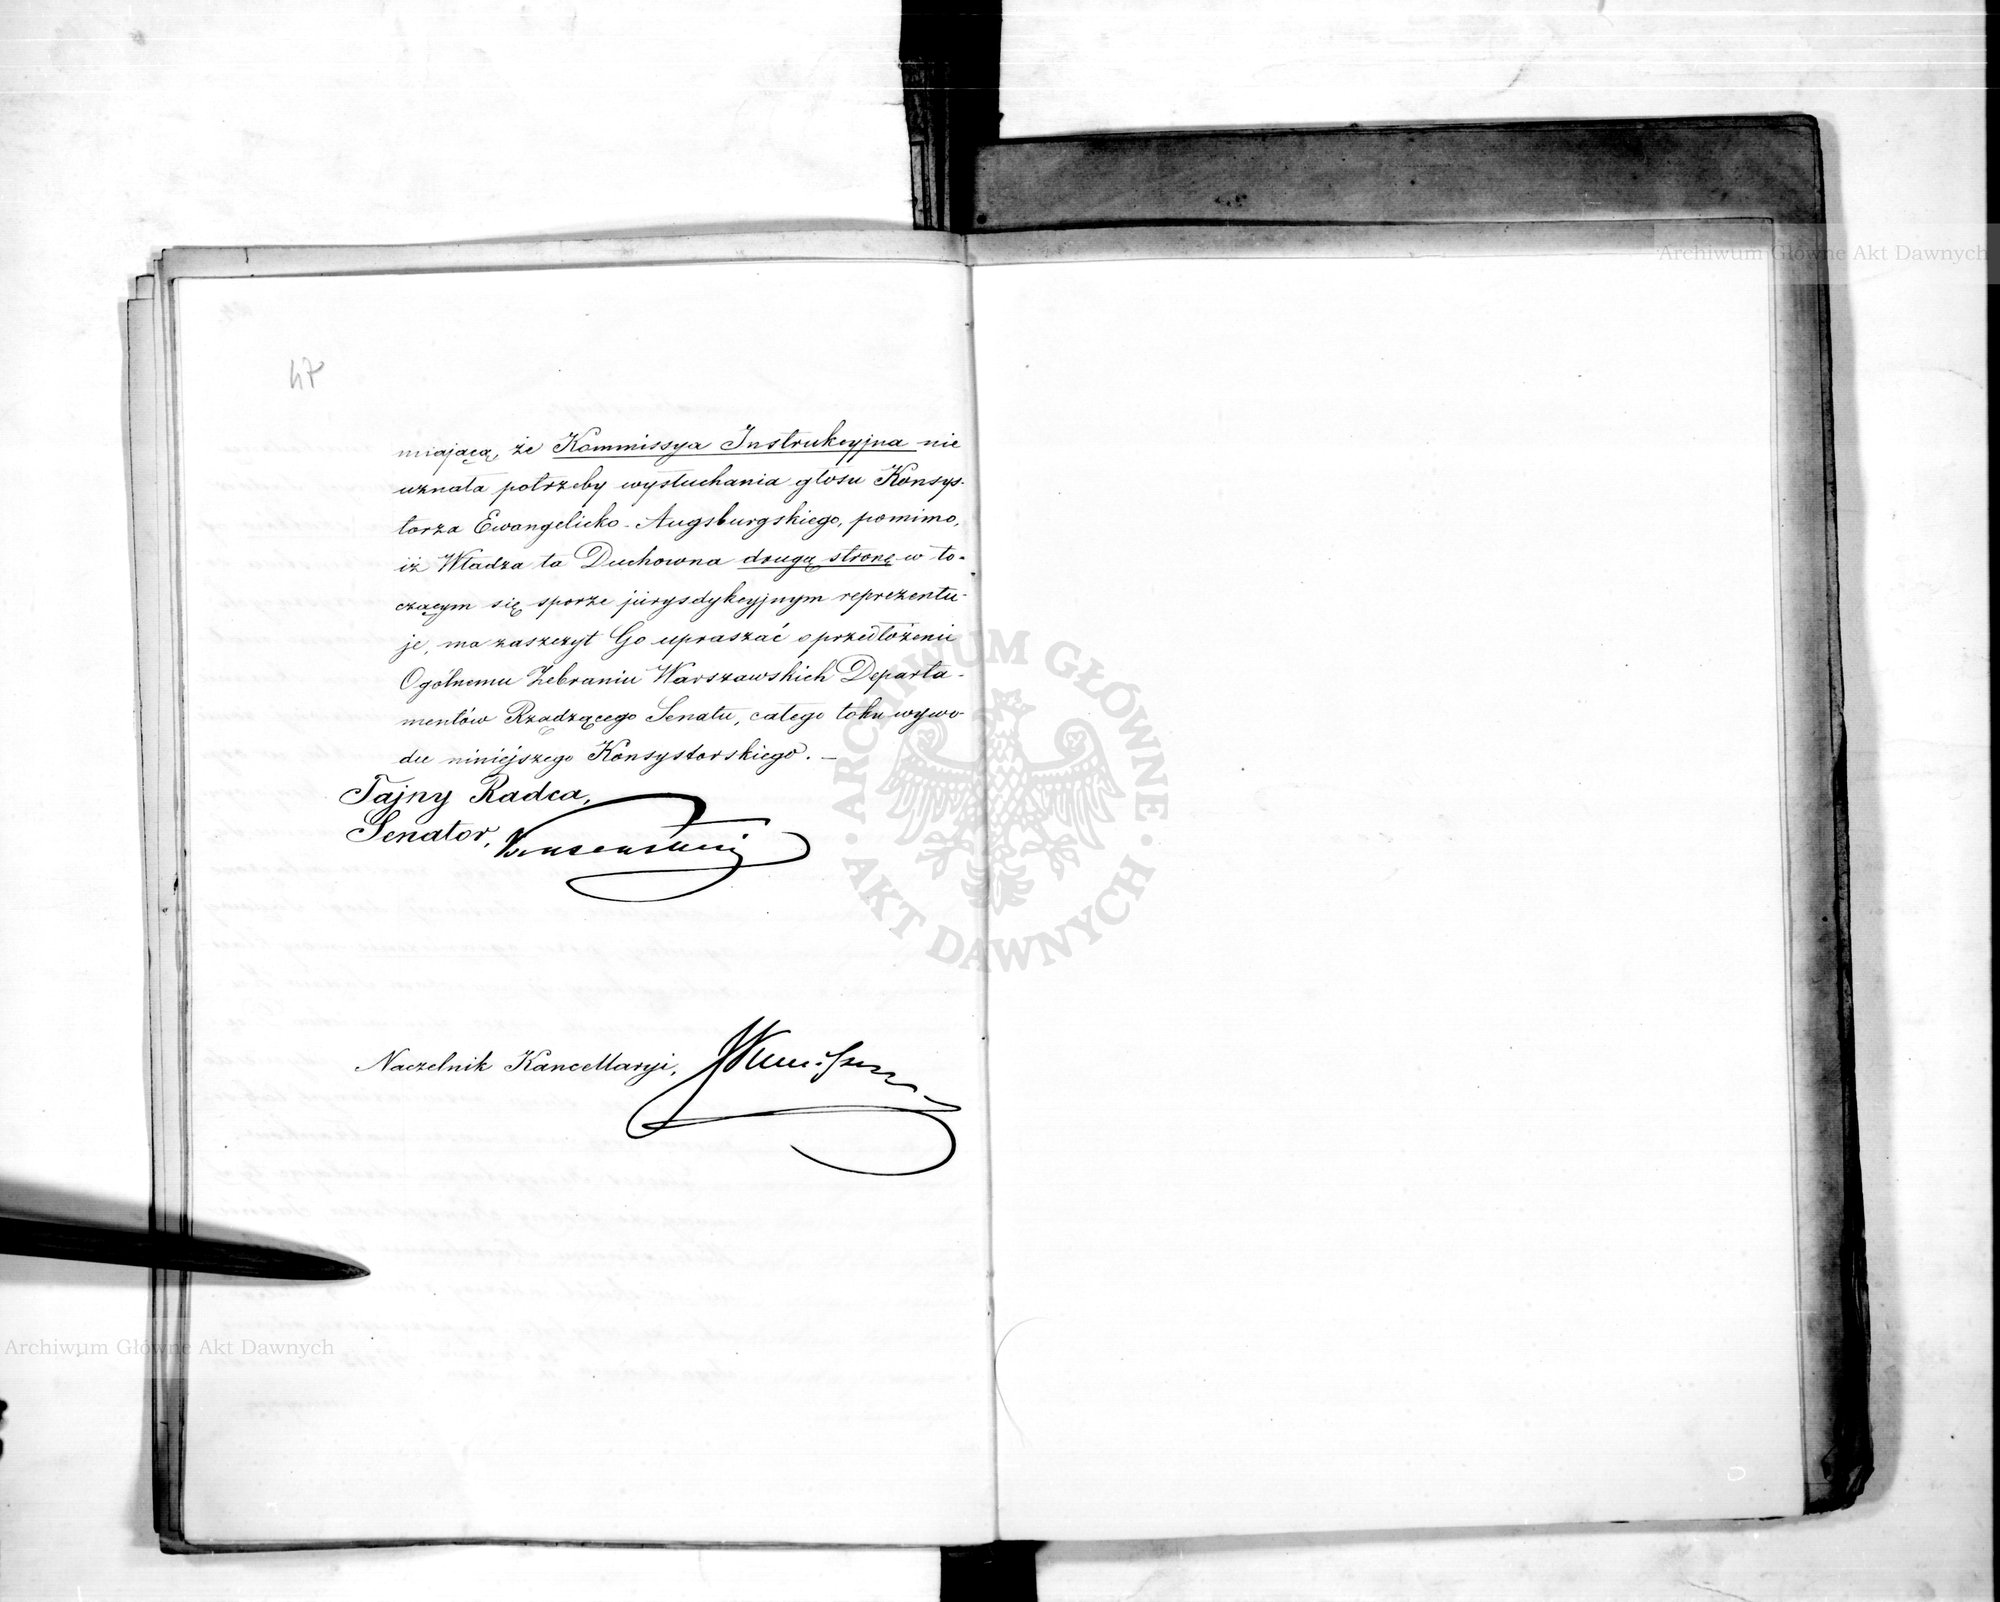 47
miającą, że Kommissya Instrukcyjna nie
uznała potrzeby wysłuchania głosu Konsys-
torza Ewangelicko-Augsburgskiego, pomimo,
iż Władza ta Duchowna drugą stronę w to-
czącym się sporze jurysdykcyjnym reprezentu-
je, ma zaszczyt Go upraszać o przedłożenie
Ogólnemu Zebraniu Warszawskich Departa-
mentów Rządzącego Senatu, całego toku wywo-
du niniejszego Konsystorskiego. —
Tajny Radca,
Senator,
Naczelnik Kancellaryi,
Archiwum Główne Akt Dawnych
ARCHIWUM GŁÓWNE
· AKT DAWNYCH ·
Archiwum Główne Akt Dawnych